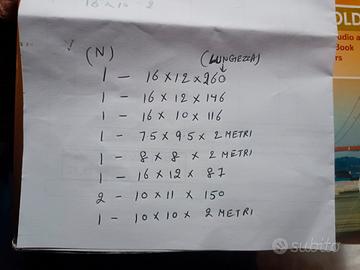 16 x 10 = 2
(N) (LUNGHEZZA)
1 - 16 x 12 x 260
1 - 16 x 12 x 146
1 - 16 x 10 x 116
1 - 75 x 95 x 2 METRI
1 - 8 x 8 x 2 METRI
1 - 16 x 12 x 87
2 - 10 x 11 x 150
1 - 10 x 10 x 2 METRI
OLD
udio a
Book
ers
subito